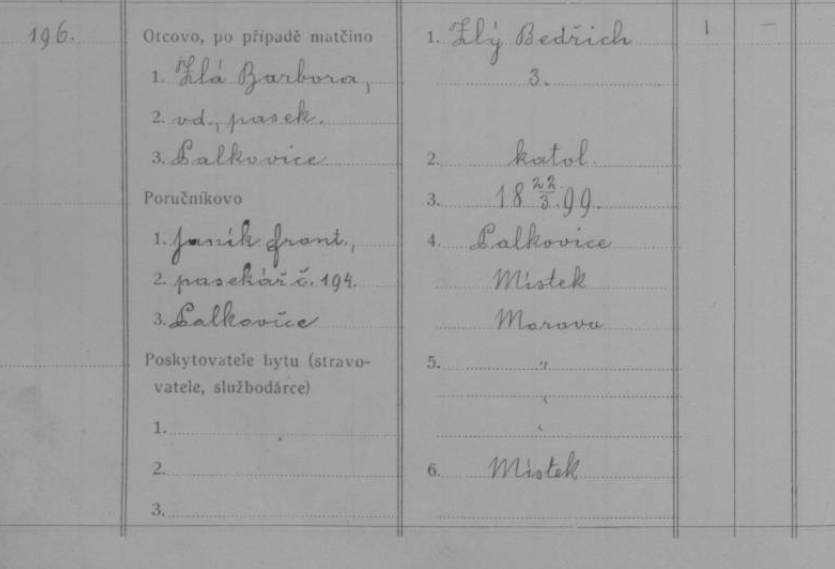 196.
Otcovo, po případě matčino
1. Zlá Barbora,
2. vd., pasek.
3. Palkovice
Poručníkovo
1. Janík Frant.,
2. pasekář č. 194.
3. Palkovice
Poskytovatele bytu (stravo-
vatele, službodárce)
1.
2.
3.
1. Zlý Bedřich
3.
2. katol.
3. 18 22/3. 99.
4. Palkovice
Místek
Morava
5. "
"
"
6. Místek
1 —